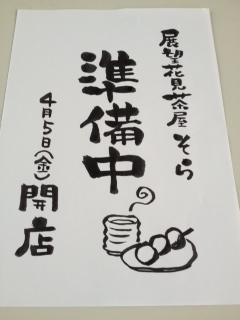 展望花見茶屋そら
準備中
4月5日(金)開店